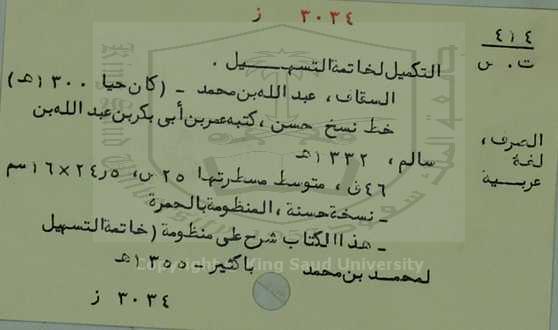 ٣٠٣٤ ز
٤١٤
ت . س
التكميل لخاتمة التسهيل .
السقاف ، عبد الله بن محمد - (كان حيا ١٣٠٠هـ)
خط نسخ حسن ، كتبه عمر بن أبي بكر بن عبد الله بن
سالم ، ١٣٣٢هـ
الصرف ،
لغة
عربية
٤٦ق ، متوسط مسطرتها ٢٥ س ، ٢٤٫٥×١٦سم
- نسخة حسنة ، المنظومة بالحمرة
- هذا الكتاب شرح على منظومة (خاتمة التسهيل
لمحمد بن محمد باكثير - ١٣٥٥هـ
Copyright © King Saud University
٣٠٣٤ ز